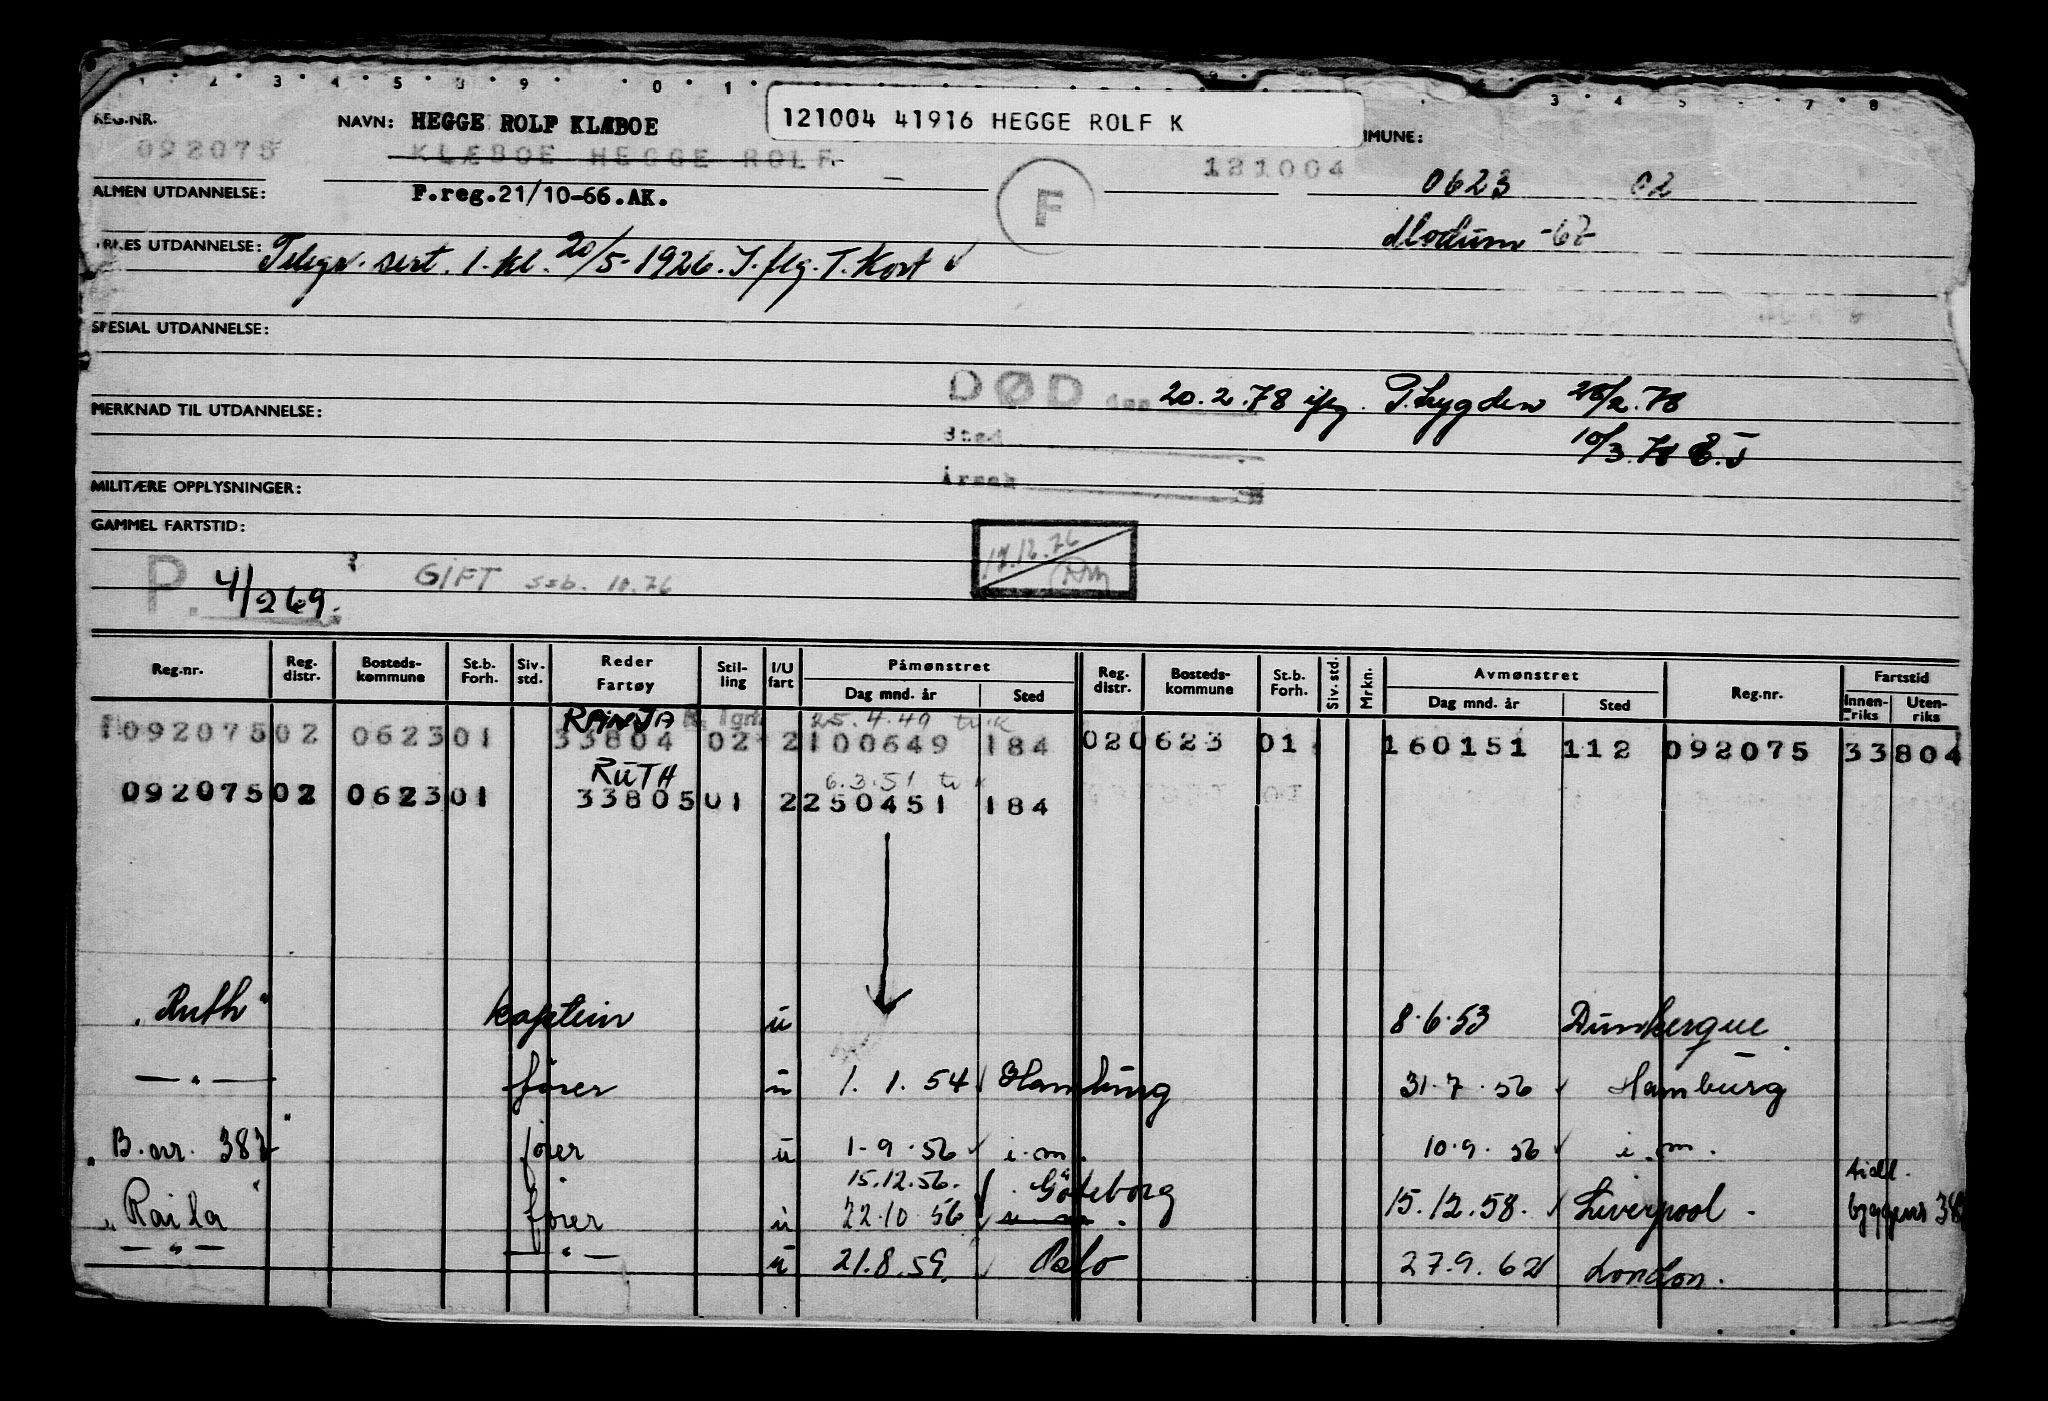 1 2 3 4 5 8 9 0 1 3 4 5 7 8
REG.NR. NAVN: HEGGE ROLF KLÆBOE 121004 41916 HEGGE ROLF K MMUNE:
092075 KLÆBOE HEGGE ROLF 121004 0623 02
ALMEN UTDANNELSE: F.reg.21/10-66.AK. F
Modum -67-
UTDANNELSE: Telegr. sert. 1. kl. 20/5-1926. I. flg. T. Kort
SPESIAL UTDANNELSE:
DØD den 20.2.78 ifg. P. trygden 28/2.78
MERKNAD TIL UTDANNELSE:
Sted 10/3.78
Årsak
MILITÆRE OPPLYSNINGER:
GAMMEL FARTSTID:
P. 4/269. GIFT ssb. 10.76
Reg.nr. Reg. distr. Bosteds-kommune St.b. Forh. Siv. std. Reder Fartøy Stil-ling I/U fart Påmønstret Dag mnd. år Sted Reg. distr. Bosteds-kommune St.b. Forh. Siv. std. Mrkn. Avmønstret Dag mnd. år Sted Reg.nr. Fartstid Innen-riks Uten-riks
RANJA 25.4.49
092075 02 0623 01 33804 02 2 100649 184 02 0623 01 160151 112 092075 33804
RUTH 6.3.51
092075 02 0623 01 33805 01 2 250451 184
"Ruth" kaptein u 8.6.53 Dunkerque
— " — fører u 1.1.54 Hamburg 31.7.56 Hamburg
"B.nr. 382" fører u 1-9.56 i.m. 10.9.56 i.m.
15.12.56. Göteborg tidl.
"Raila" fører u 22.10.56 i.m. 15.12.58. Liverpool byggenr 38
— " — — " — u 21.8.59. Oslo 27.9.62 London.